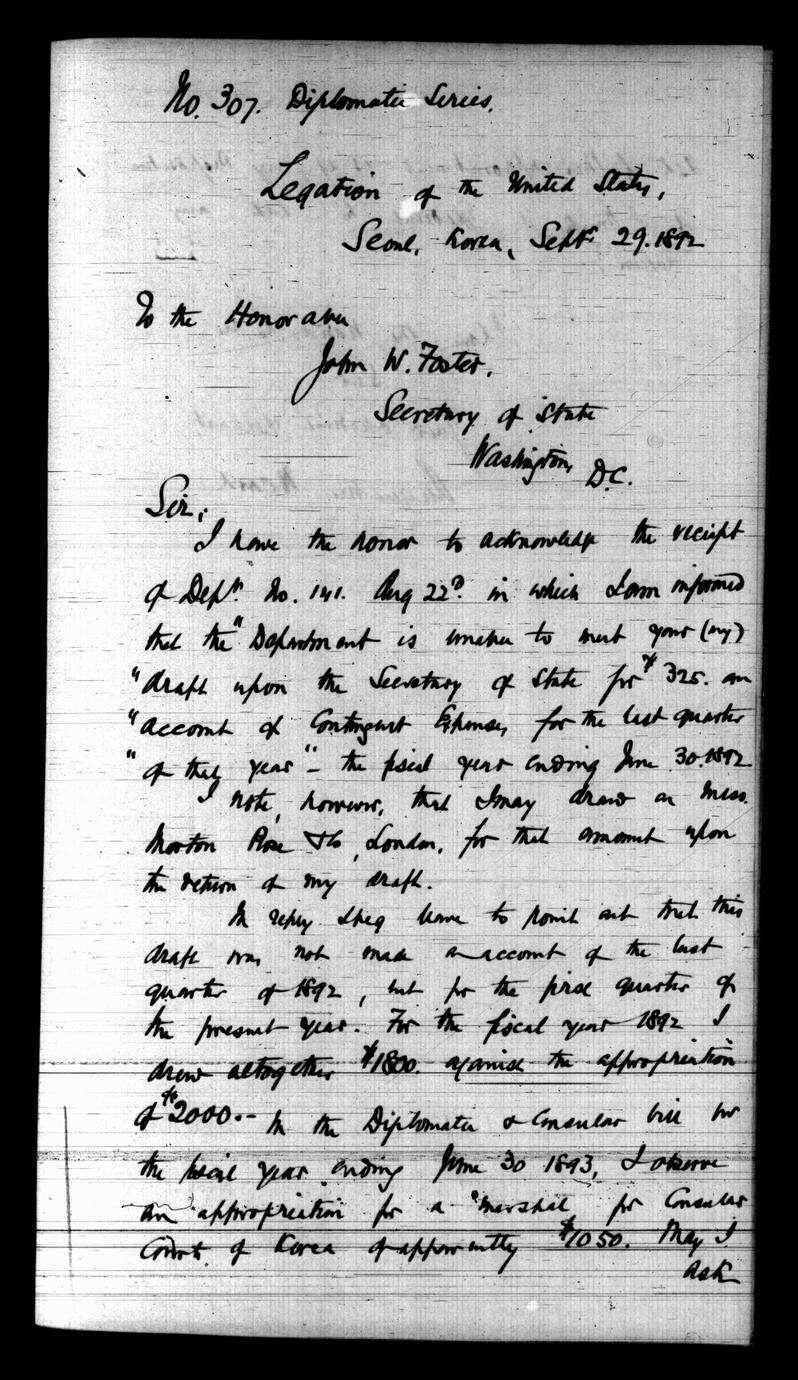 No. 307. Diplomatic Series.
Legation of the United States,
Seoul, Korea, Septr 29. 1892
To the Honorable
John W. Foster,
Secretary of State
Washington, D.C.
Sir;
I have the honor to acknowledge the receipt
of Dept. No. 141. Aug 22d. in which I am informed
that the "Department is unable to meet your (my)
"draft upon the Secretary of State for $325. on
"account of Contingent Expenses for the last quarter
"of that year" – the fiscal year ending June 30. 1892
I note, however, that I may draw on Mess.
Morton Rose & Co, London, for that amount upon
the return of my draft.
In reply I beg leave to point out that this
draft was not made on account of the last
quarter of 1892, but for the first quarter of
the present year. For the fiscal year 1892 I
drew altogether $1800. against the appropriation
of $2000.– In the Diplomatic & Consular bill for
the fiscal year ending June 30 1893, I observe
an appropriation for a "marshal for Consular
Court of Korea of apparently $1050. May I
ask